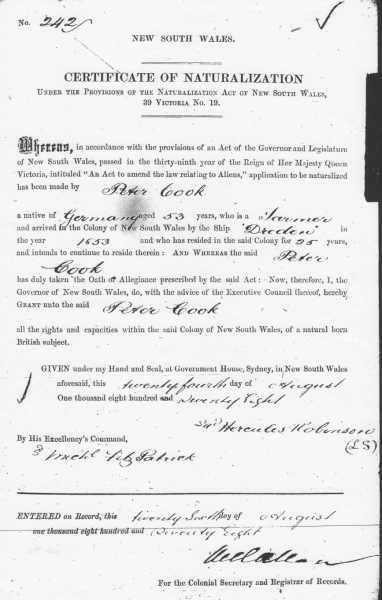 No. 242
NEW SOUTH WALES.
CERTIFICATE OF NATURALIZATION
UNDER THE PROVISIONS OF THE NATURALIZATION ACT OF NEW SOUTH WALES,
39 VICTORIA No. 19.
Whereas, in accordance with the provisions of an Act of the Governor and Legislature
of New South Wales, passed in the thirty-ninth year of the Reign of Her Majesty Queen
Victoria, intituled "An Act to amend the law relating to Aliens," application to be naturalized
has been made by Peter Cook
a native of Germany aged 53 years, who is a Farmer
and arrived in the Colony of New South Wales by the Ship "Dreden" in
the year 1853 and who has resided in the said Colony for 25 years,
and intends to continue to reside therein: AND WHEREAS the said Peter
Cook
has duly taken the Oath of Allegiance prescribed by the said Act: Now, therefore, I, the
Governor of New South Wales, do, with the advice of the Executive Council thereof, hereby
GRANT unto the said Peter Cook
all the rights and capacities within the said Colony of New South Wales, of a natural born
British subject.
GIVEN under my Hand and Seal, at Government House, Sydney, in New South Wales
aforesaid, this twenty fourth day of August
One thousand eight hundred and Seventy Eight
Hercules Robinson
(LS)
By His Excellency's Command,
Michl Fitzpatrick
ENTERED on Record, this twenty Sixth Day of August
one thousand eight hundred and Seventy Eight
For the Colonial Secretary and Registrar of Records.